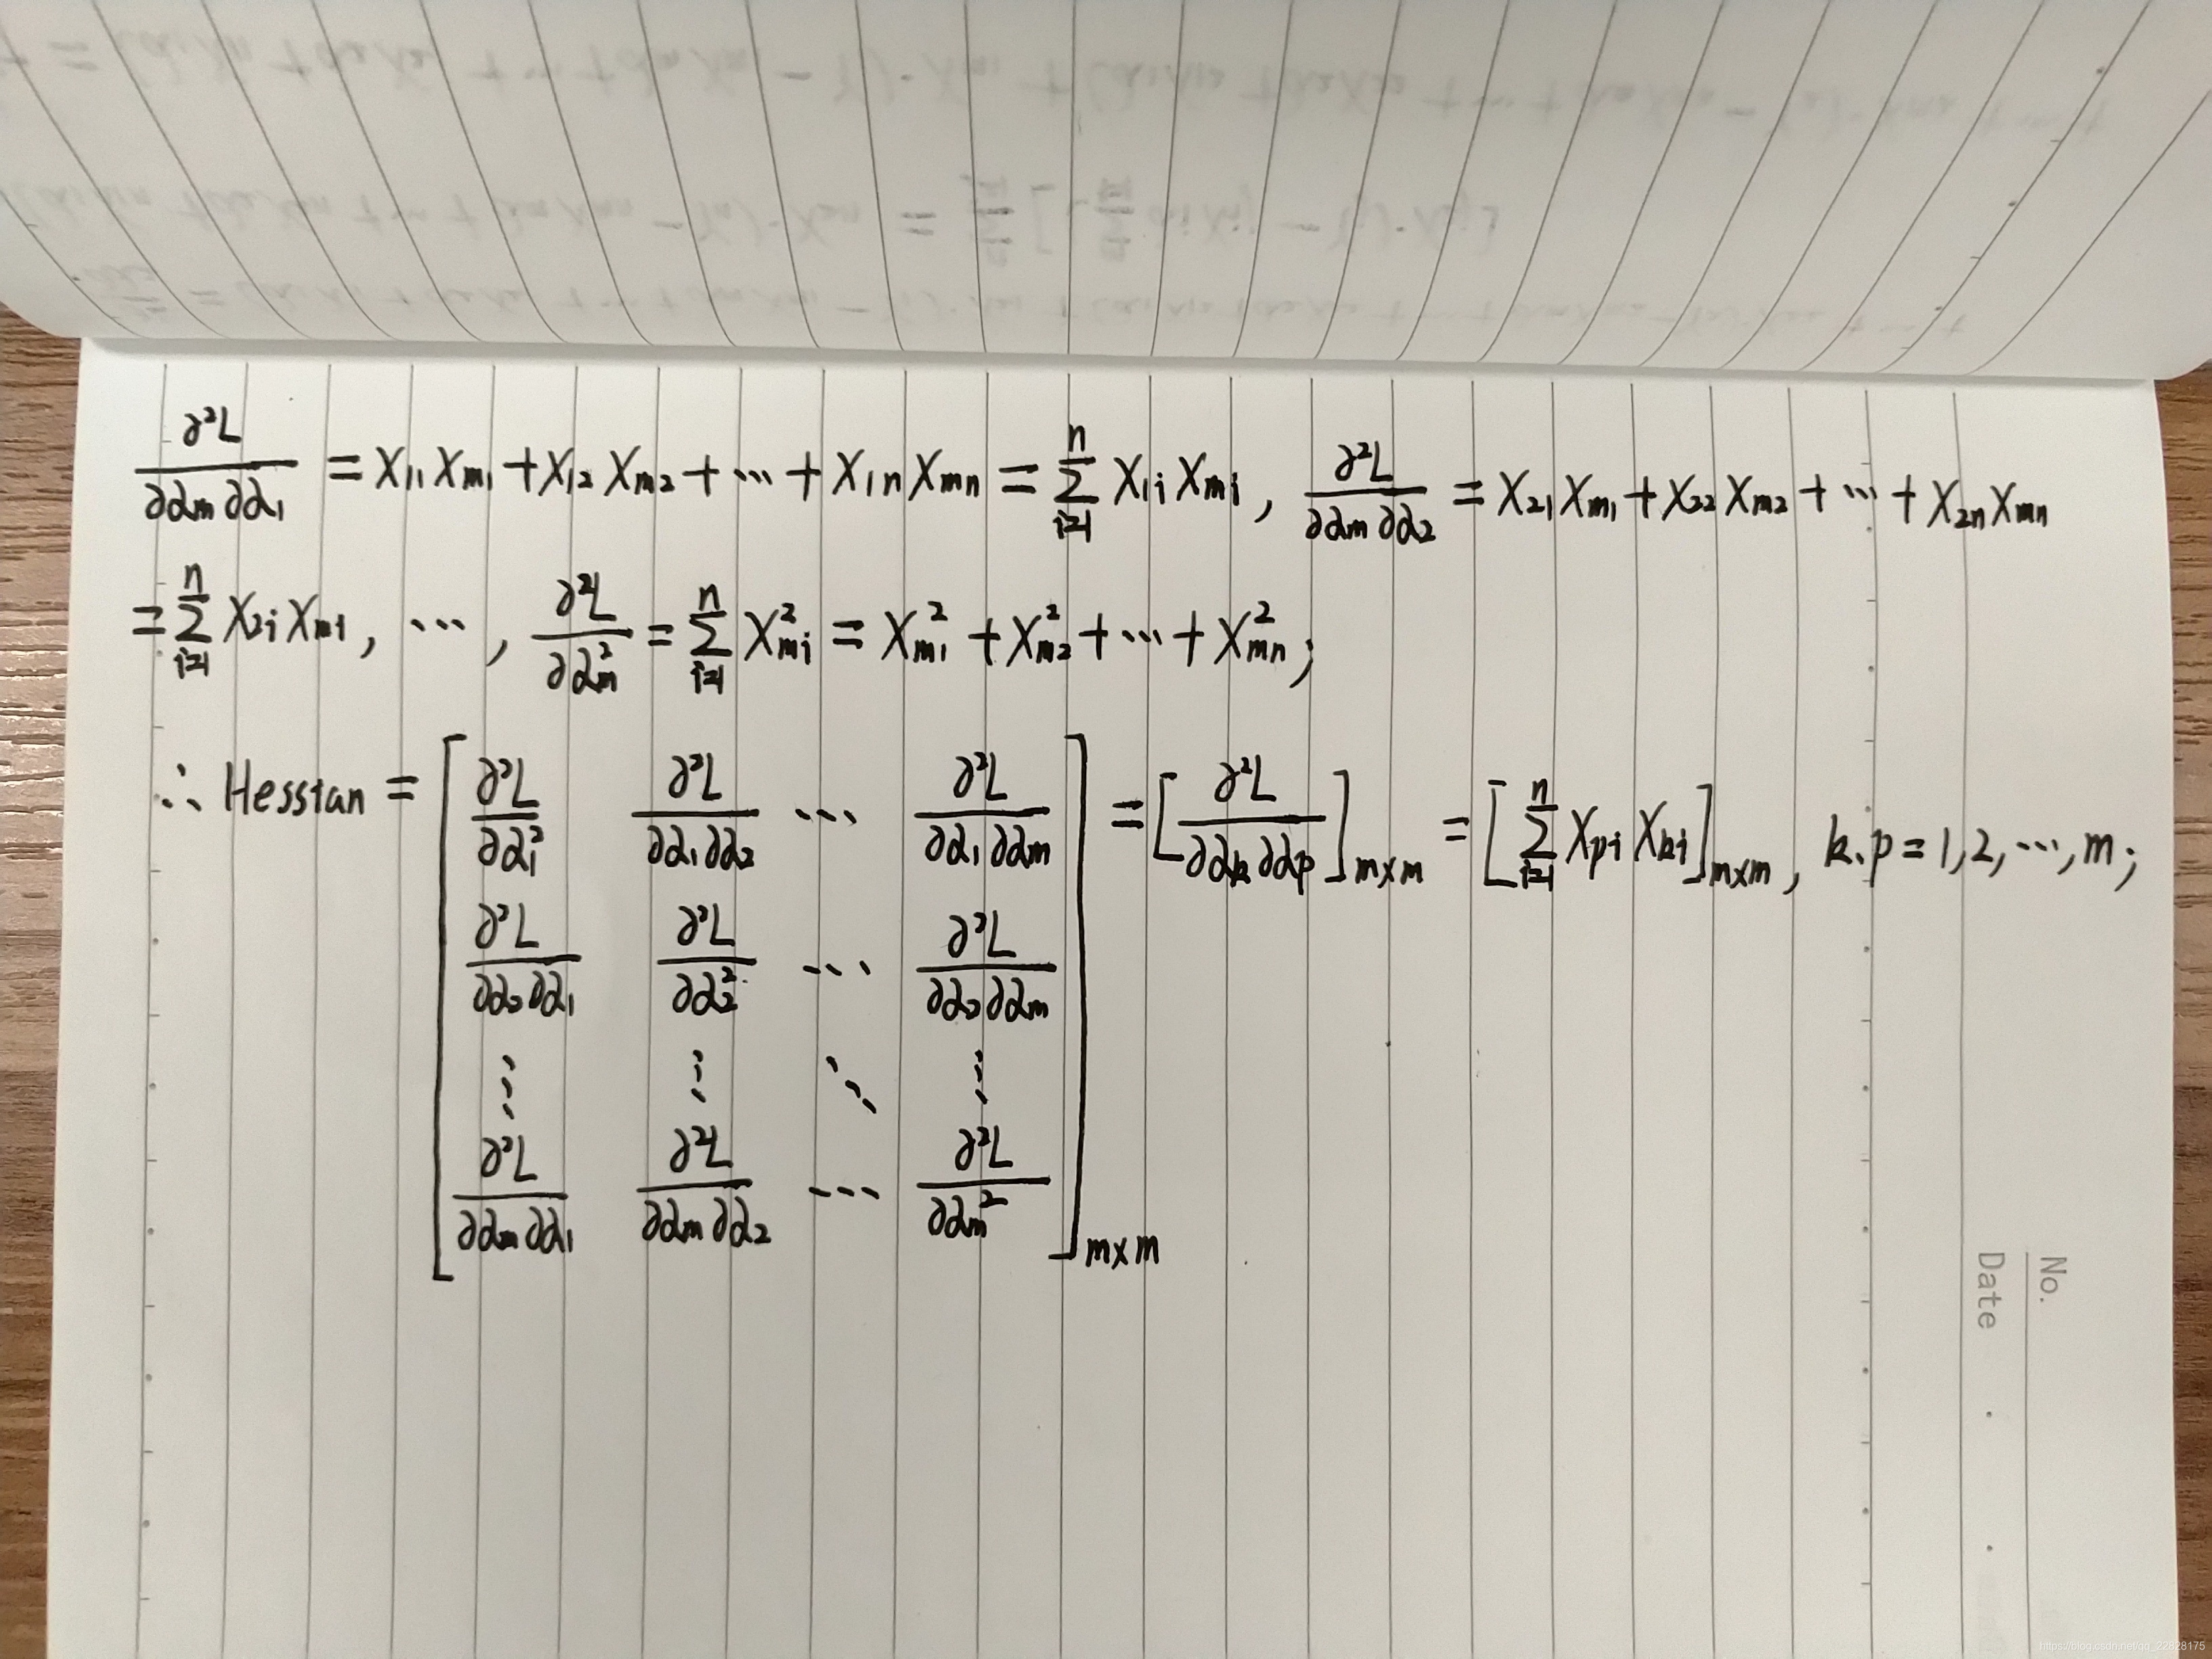 ∂²L/∂α_m∂α_1 = X_11 X_m1 + X_12 X_m2 + ⋯ + X_1n X_mn = ∑_{i=1}^{n} X_1i X_mi , ∂²L/∂α_m∂α_2 = X_21 X_m1 + X_22 X_m2 + ⋯ + X_2n X_mn
= ∑_{i=1}^{n} X_2i X_mi , ⋯ , ∂²L/∂α_m² = ∑_{i=1}^{n} X_mi² = X_m1² + X_m2² + ⋯ + X_mn² ;
∴ Hessian = [ ∂²L/∂α_1² ∂²L/∂α_1∂α_2 ⋯ ∂²L/∂α_1∂α_m = [ ∂²L/∂α_k∂α_p ]_{m×m} = [ ∑_{i=1}^{n} X_pi X_ki ]_{m×m} , k.p = 1,2,⋯,m ;
∂²L/∂α_2∂α_1 ∂²L/∂α_2² ⋯ ∂²L/∂α_2∂α_m
⋮ ⋮ ⋱ ⋮
∂²L/∂α_m∂α_1 ∂²L/∂α_m∂α_2 ⋯ ∂²L/∂α_m² ]_{m×m}
No.
Date
https://blog.csdn.net/qq_22828175